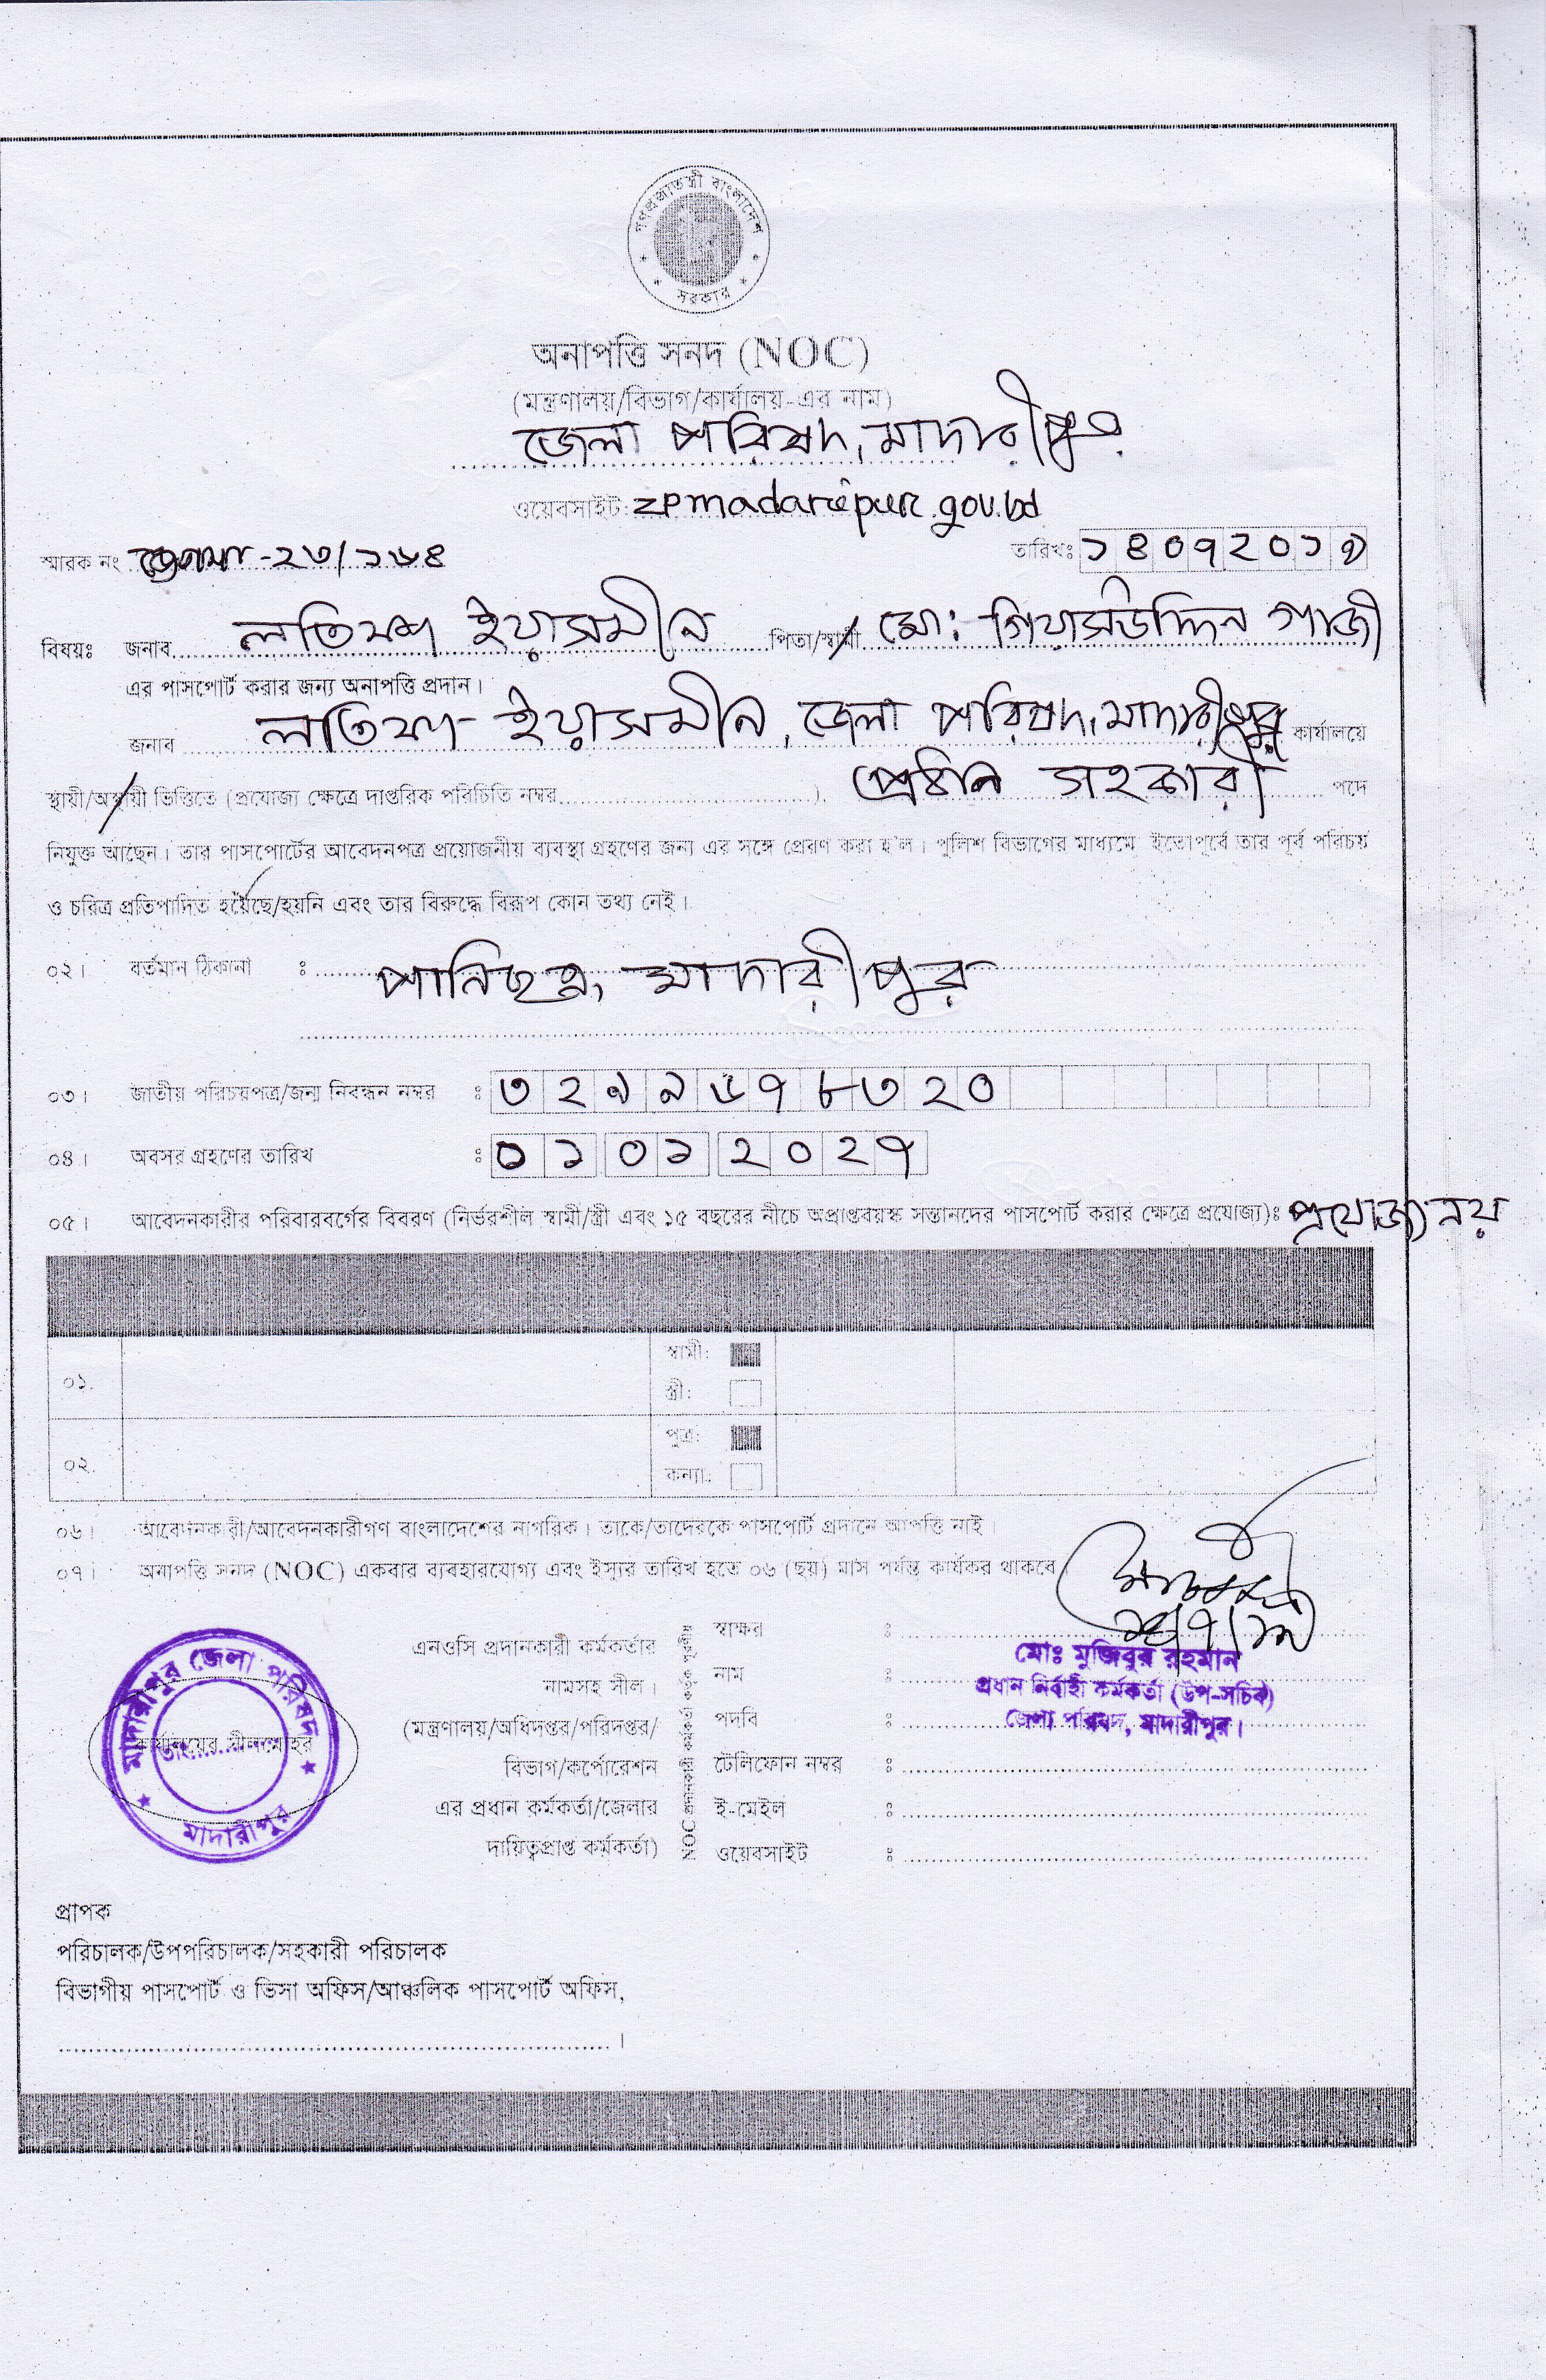 গণপ্রজাতন্ত্রী বাংলাদেশ
সরকার
অনাপত্তি সনদ (NOC)
(মন্ত্রণালয়/বিভাগ/কার্যালয়-এর নাম)
জেলা পরিষদ, মাদারীপুর
ওয়েবসাইট: zpmadaripur.gov.bd
স্মারক নং -২৩/১৬৪ তারিখঃ ১৪০৭২০১৯
বিষয়ঃ জনাব লতিফা ইয়াসমীন পিতা/স্বামী মো: গিয়াসউদ্দিন গাজী
এর পাসপোর্ট করার জন্য অনাপত্তি প্রদান।
জনাব লতিফা ইয়াসমীন, জেলা পরিষদ, মাদারীপুর কার্যালয়ে
স্থায়ী/অস্থায়ী ভিত্তিতে (প্রযোজ্য ক্ষেত্রে দাপ্তরিক পরিচিতি নম্বর..............................). সহকারী পদে
নিযুক্ত আছেন। তার পাসপোর্টের আবেদনপত্র প্রয়োজনীয় ব্যবস্থা গ্রহণের জন্য এর সঙ্গে প্রেরণ করা হ'ল। পুলিশ বিভাগের মাধ্যমে ইতোপূর্বে তার পূর্ব পরিচয়
ও চরিত্র প্রতিপাদিত হয়েছে/হয়নি এবং তার বিরুদ্ধে বিরূপ কোন তথ্য নেই।
০২। বর্তমান ঠিকানা : পানিছত্র, মাদারীপুর
০৩। জাতীয় পরিচয়পত্র/জন্ম নিবন্ধন নম্বর : ৩২৯৯৬৭৮৩২০
০৪। অবসর গ্রহণের তারিখ : ০১০১২০২৭
০৫। আবেদনকারীর পরিবারবর্গের বিবরণ (নির্ভরশীল স্বামী/স্ত্রী এবং ১৫ বছরের নীচে অপ্রাপ্তবয়স্ক সন্তানদের পাসপোর্ট করার ক্ষেত্রে প্রযোজ্য)ঃ প্রযোজ্য নয়
০১. স্বামী:
স্ত্রী:
০২. পুত্র:
কন্যা:
০৬। আবেদনকারী/আবেদনকারীগণ বাংলাদেশের নাগরিক। তাকে/তাদেরকে পাসপোর্ট প্রদানে আপত্তি নাই।
০৭। অনাপত্তি সনদ (NOC) একবার ব্যবহারযোগ্য এবং ইস্যুর তারিখ হতে ০৬ (ছয়) মাস পর্যন্ত কার্যকর থাকবে
মাদারীপুর জেলা পরিষদ
কার্যালয়ের সীলমোহর
তাং
মাদারীপুর
এনওসি প্রদানকারী কর্মকর্তার
নামসহ সীল।
(মন্ত্রণালয়/অধিদপ্তর/পরিদপ্তর/
বিভাগ/কর্পোরেশন
এর প্রধান কর্মকর্তা/জেলার
দায়িত্বপ্রাপ্ত কর্মকর্তা)
NOC প্রদানকারী কর্মকর্তা কর্তৃক পূরণীয়
স্বাক্ষর :
নাম : মোঃ মুজিবুর রহমান
প্রধান নির্বাহী কর্মকর্তা (উপ-সচিব)
পদবি : জেলা পরিষদ, মাদারীপুর।
টেলিফোন নম্বর :
ই-মেইল :
ওয়েবসাইট :
প্রাপক
পরিচালক/উপপরিচালক/সহকারী পরিচালক
বিভাগীয় পাসপোর্ট ও ভিসা অফিস/আঞ্চলিক পাসপোর্ট অফিস,
।